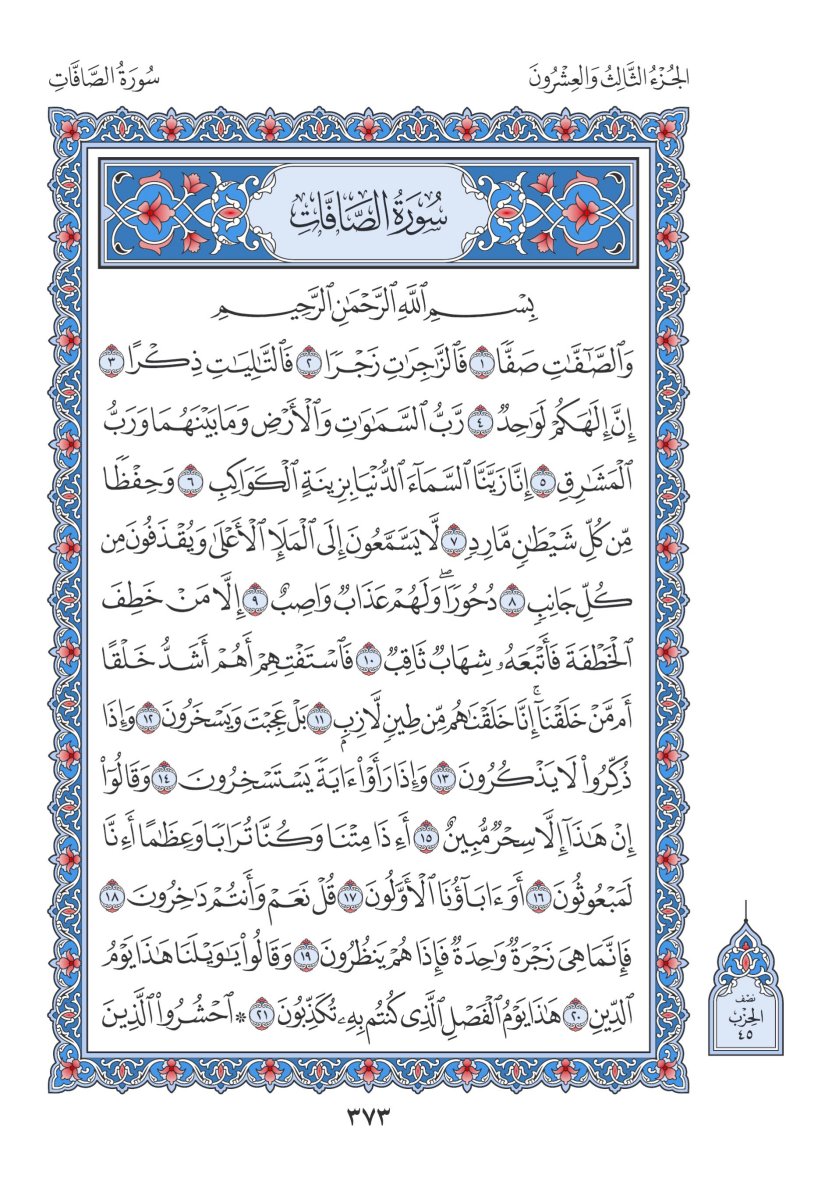 الجُزْءُ الثَّالِثُ وَالعِشْرُونَ
سُورَةُ الصَّافَّاتِ
سُورَةُ الصَّافَّاتِ
بِسْمِ ٱللَّهِ ٱلرَّحْمَٰنِ ٱلرَّحِيمِ
وَٱلصَّٰٓفَّٰتِ صَفّٗا ١ فَٱلزَّٰجِرَٰتِ زَجۡرٗا ٢ فَٱلتَّٰلِيَٰتِ ذِكۡرًا ٣
إِنَّ إِلَٰهَكُمۡ لَوَٰحِدٞ ٤ رَّبُّ ٱلسَّمَٰوَٰتِ وَٱلۡأَرۡضِ وَمَا بَيۡنَهُمَا وَرَبُّ
ٱلۡمَشَٰرِقِ ٥ إِنَّا زَيَّنَّا ٱلسَّمَآءَ ٱلدُّنۡيَا بِزِينَةٍ ٱلۡكَوَاكِبِ ٦ وَحِفۡظٗا
مِّن كُلِّ شَيۡطَٰنٖ مَّارِدٖ ٧ لَّا يَسَّمَّعُونَ إِلَى ٱلۡمَلَإِ ٱلۡأَعۡلَىٰ وَيُقۡذَفُونَ مِن
كُلِّ جَانِبٖ ٨ دُحُورٗاۖ وَلَهُمۡ عَذَابٞ وَاصِبٌ ٩ إِلَّا مَنۡ خَطِفَ
ٱلۡخَطۡفَةَ فَأَتۡبَعَهُۥ شِهَابٞ ثَاقِبٞ ١٠ فَٱسۡتَفۡتِهِمۡ أَهُمۡ أَشَدُّ خَلۡقًا
أَم مَّنۡ خَلَقۡنَآۚ إِنَّا خَلَقۡنَٰهُم مِّن طِينٖ لَّازِبِۭ ١١ بَلۡ عَجِبۡتَ وَيَسۡخَرُونَ ١٢ وَإِذَا
ذُكِّرُواْ لَا يَذۡكُرُونَ ١٣ وَإِذَا رَأَوۡاْ ءَايَةٗ يَسۡتَسۡخِرُونَ ١٤ وَقَالُوٓاْ
إِنۡ هَٰذَآ إِلَّا سِحۡرٞ مُّبِينٌ ١٥ أَءِذَا مِتۡنَا وَكُنَّا تُرَابٗا وَعِظَٰمًا أَءِنَّا
لَمَبۡعُوثُونَ ١٦ أَوَءَابَآؤُنَا ٱلۡأَوَّلُونَ ١٧ قُلۡ نَعَمۡ وَأَنتُمۡ دَٰخِرُونَ ١٨
فَإِنَّمَا هِيَ زَجۡرَةٞ وَٰحِدَةٞ فَإِذَا هُمۡ يَنظُرُونَ ١٩ وَقَالُواْ يَٰوَيۡلَنَا هَٰذَا يَوۡمُ
ٱلدِّينِ ٢٠ هَٰذَا يَوۡمُ ٱلۡفَصۡلِ ٱلَّذِي كُنتُم بِهِۦ تُكَذِّبُونَ ٢١ ۞ٱحۡشُرُواْ ٱلَّذِينَ
نصف
الحِزْب
٤٥
٣٧٣